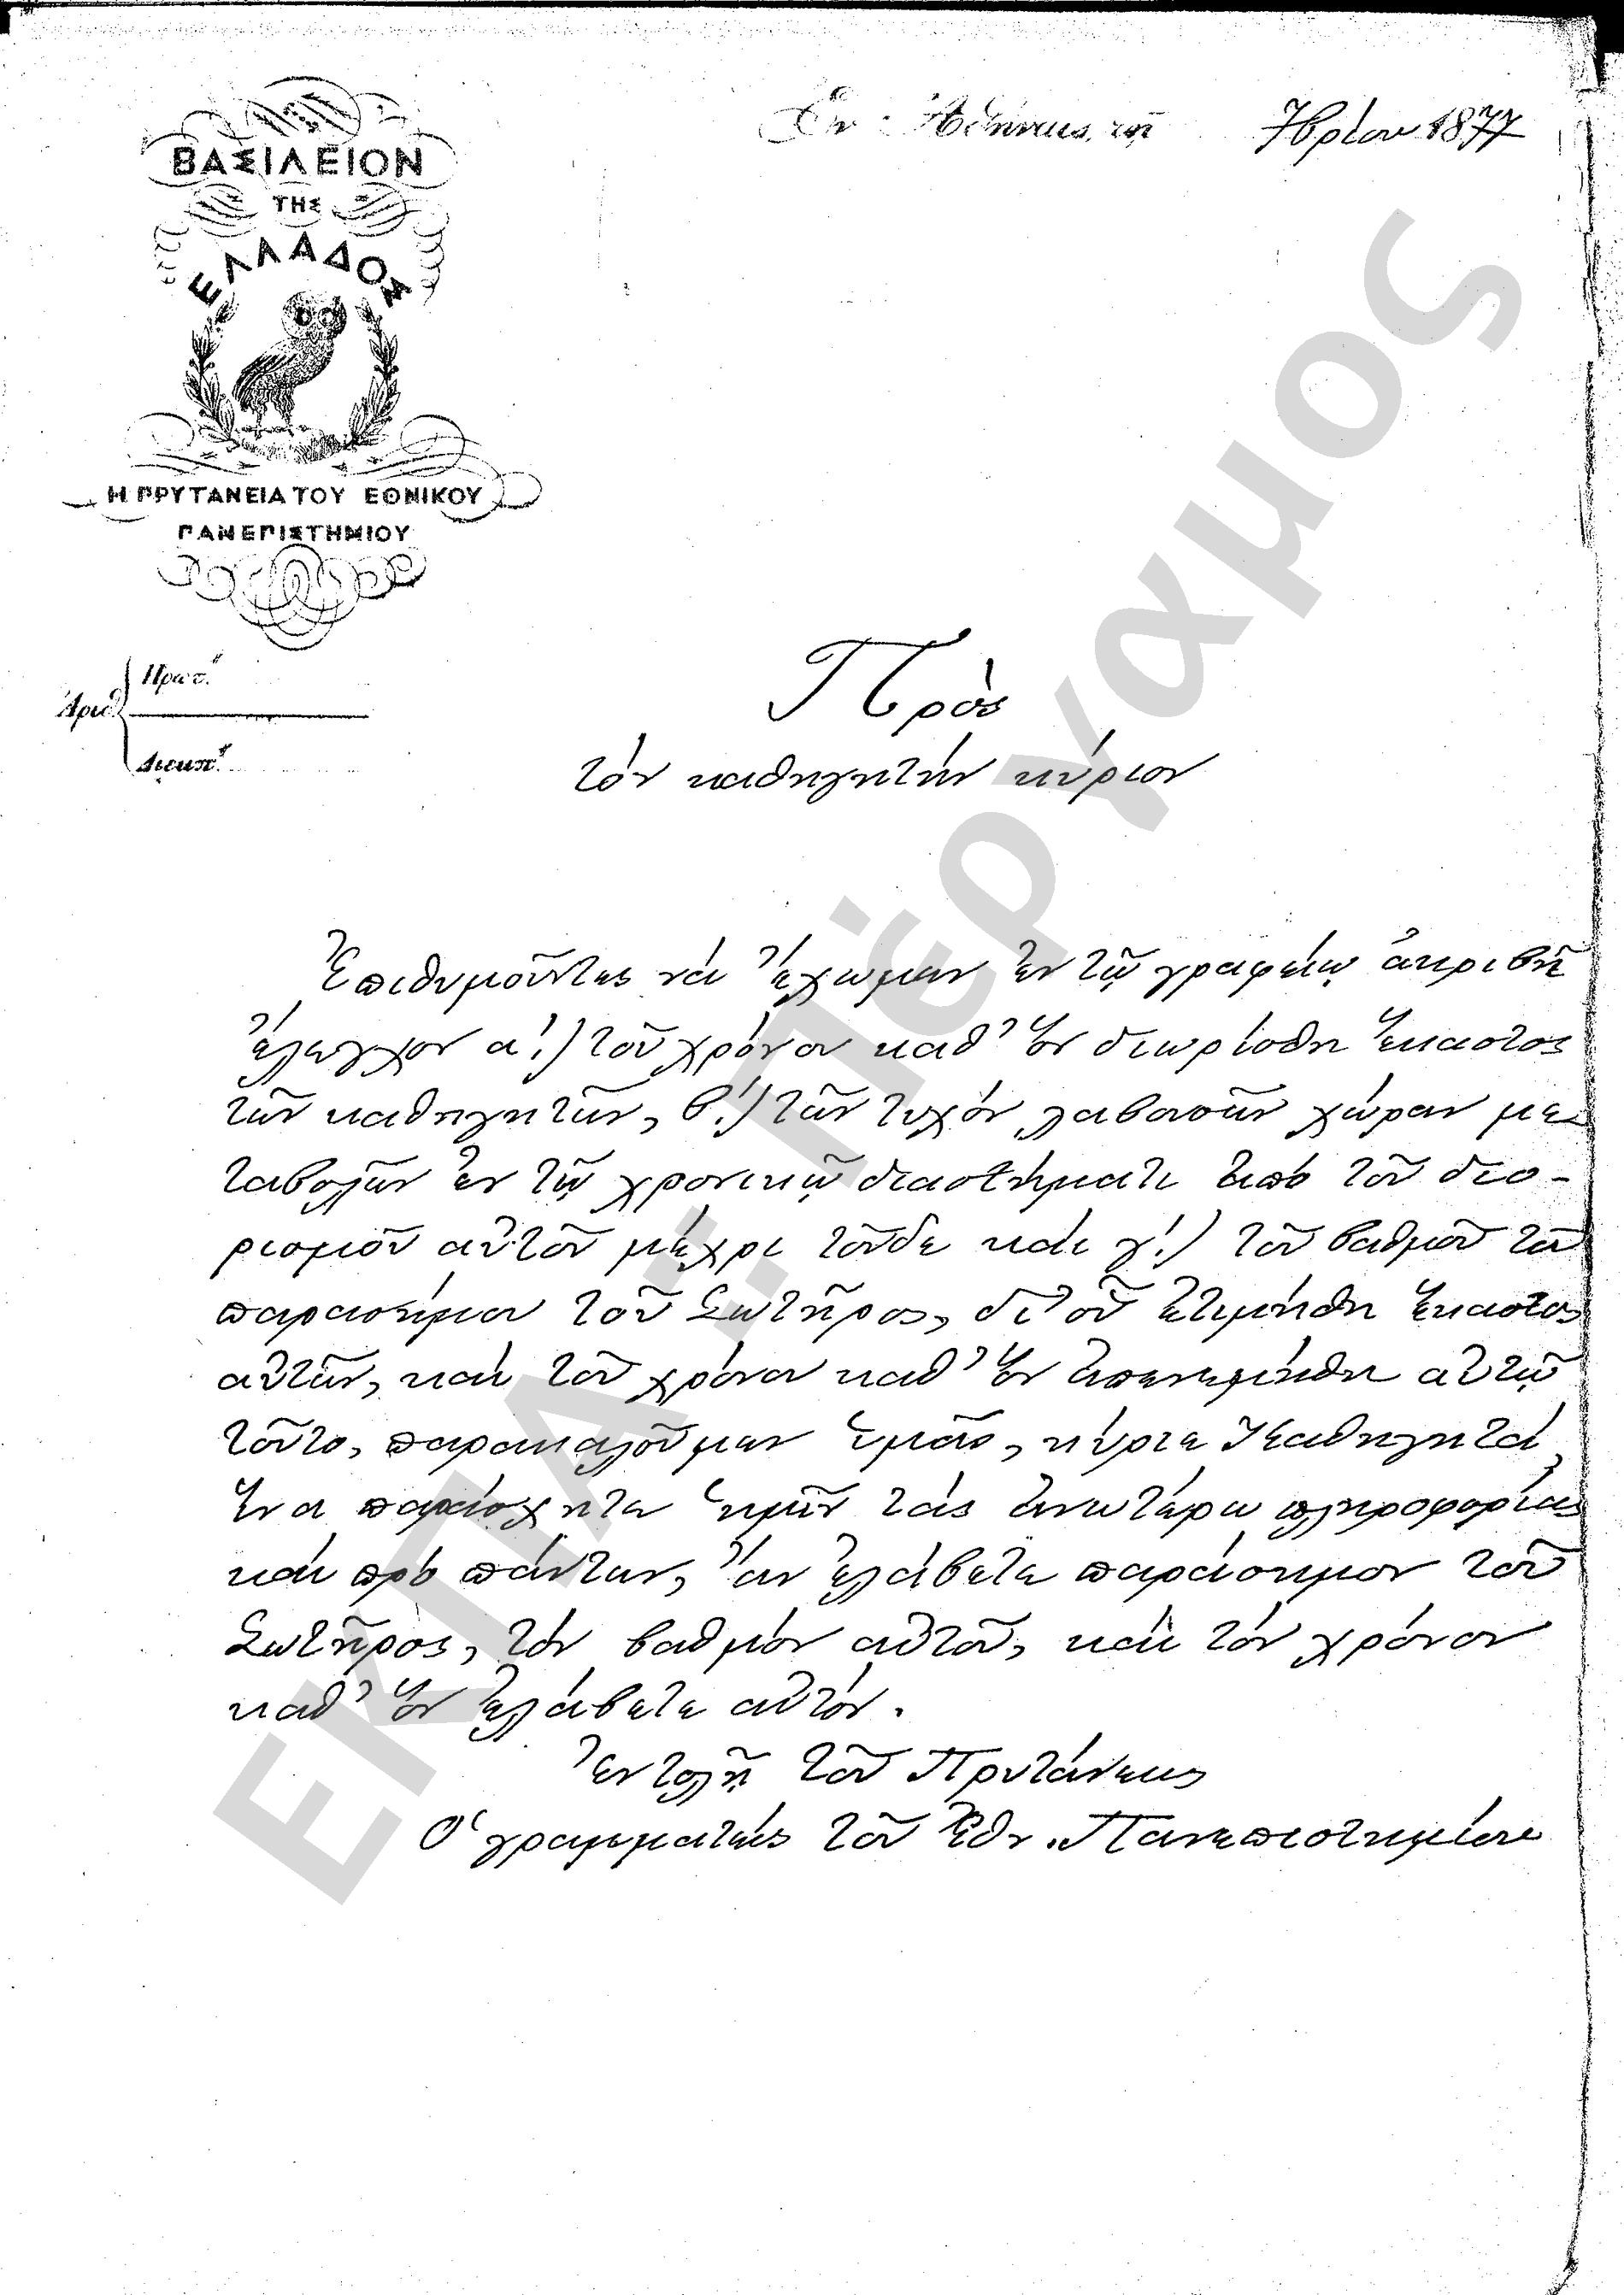 Ἐν Ἀθήναις, τῇ 7βρίου 1877
ΒΑΣΙΛΕΙΟΝ
ΤΗΣ
ΕΛΛΑΔΟΣ
Η ΠΡΥΤΑΝΕΙΑ ΤΟΥ ΕΘΝΙΚΟΥ
ΠΑΝΕΠΙΣΤΗΜΙΟΥ
Πρωτ.
Ἀριθ.
Διεκπ.
Πρὸς
τὸν καθηγητὴν κύριον
Ἐπιθυμοῦντες νὰ ἔχωμεν ἐν τῷ γραφείῳ ἀκριβῆ
ἔλεγχον α΄.) τοῦ χρόνου καθ' ὃν διωρίσθη ἕκαστος
τῶν καθηγητῶν, β΄.) τῶν τυχὸν λαβουσῶν χώραν με-
ταβολῶν ἐν τῷ χρονικῷ διαστήματι ἀπὸ τοῦ διο-
ρισμοῦ αὐτοῦ μέχρι τοῦδε καὶ γ΄.) τοῦ βαθμοῦ τοῦ
παρασήμου τοῦ Σωτῆρος, δι' οὗ ἐτιμήθη ἕκαστος
αὐτῶν, καὶ τοῦ χρόνου καθ' ὃν ἀπενεμήθη αὐτῷ
τοῦτο, παρακαλοῦμεν ὑμᾶς, κύριε Καθηγητά,
ἵνα παράσχητε ἡμῖν τὰς ἀνωτέρω πληροφορίας
καὶ πρὸ πάντων, ἂν ἐλάβετε παράσημον τοῦ
Σωτῆρος, τὸν βαθμὸν αὐτοῦ, καὶ τὸν χρόνον
καθ' ὃν ἐλάβετε αὐτόν.
Ἐντολῇ τοῦ Πρυτάνεως
Ὁ γραμματεὺς τοῦ Ἐθν. Πανεπιστημίου
ΕΚΠΑ - Πέργαμος